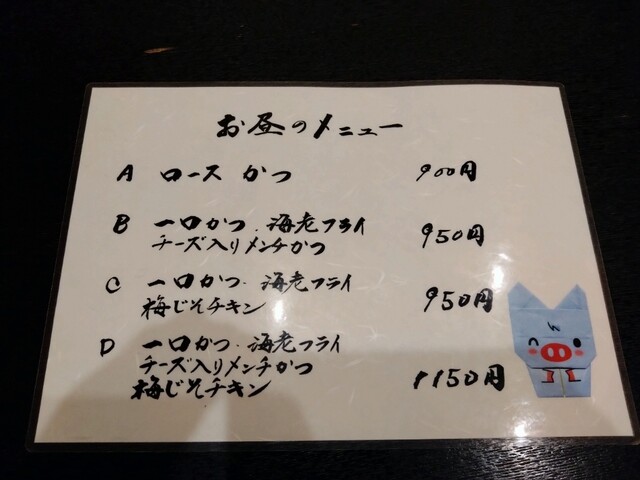 お昼のメニュー
A ロースかつ 900円
B 一口かつ・海老フライ
チーズ入りメンチかつ 950円
C 一口かつ・海老フライ
梅じそチキン 950円
D 一口かつ・海老フライ
チーズ入りメンチかつ
梅じそチキン 1150円